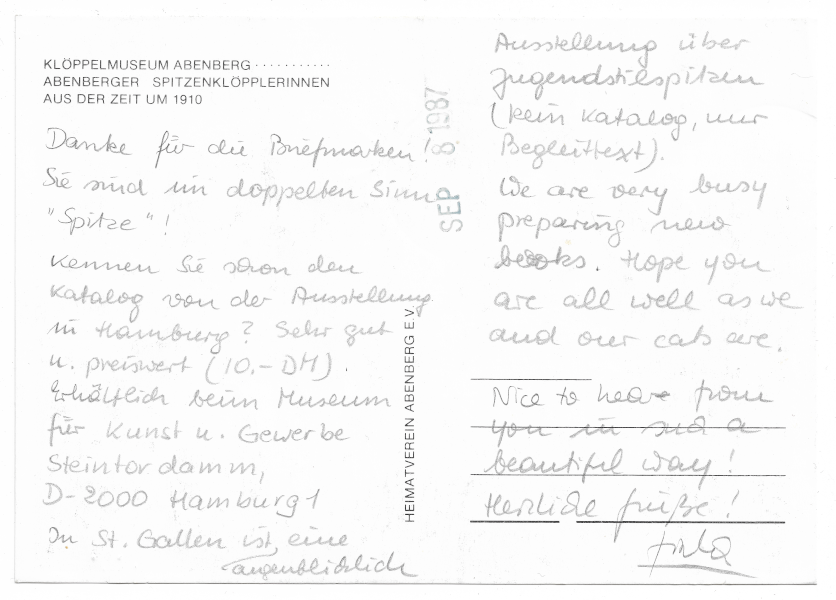 KLÖPPELMUSEUM ABENBERG ...........
ABENBERGER SPITZENKLÖPPLERINNEN
AUS DER ZEIT UM 1910
Danke für die Briefmarken!
Sie sind im doppelten Sinne
"Spitze"!
Kennen Sie schon den
Katalog von der Ausstellung
in Hamburg? Sehr gut
u. preiswert (10.- DM).
Erhältlich beim Museum
für Kunst u. Gewerbe
Steintordamm,
D-2000 Hamburg 1
In St. Gallen ist eine
augenblicklich
HEIMATVEREIN ABENBERG E.V.
SEP 8 1987
Ausstellung über
Jugendstilspitzen
(kein Katalog, nur
Begleittext).
We are very busy
preparing new
books. Hope you
are all well as we
and our cats are.
Nice to hear from
you in such a
beautiful way!
Herzliche Grüße!